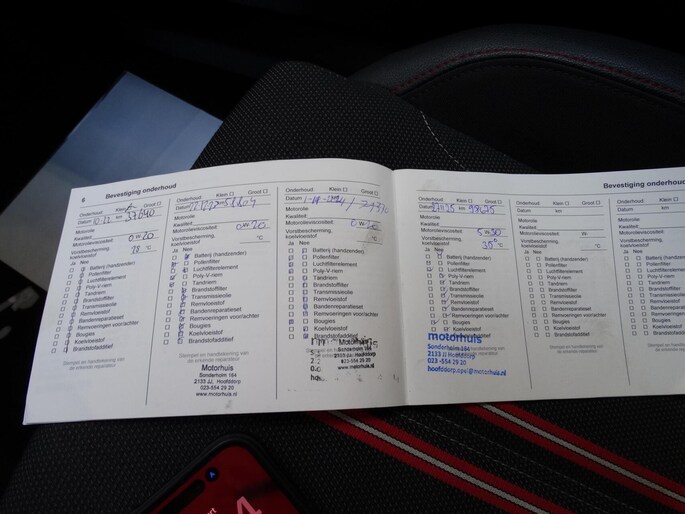 6
Bevestiging onderhoud
Onderhoud: Klein Groot
Datum 10-22 km 37640
Motorolie
Kwaliteit
Motorolieviscositeit: 0W20
Vorstbescherming,
koelvloeistof 28 °C
Ja Nee
Batterij (handzender)
Pollenfilter
Luchtfilterelement
Poly V-riem
Tandriem
Brandstoffilter
Transmissieolie
Remvloeistof
Bandenreparatieset
Remvoeringen voor/achter
Bougies
Koelvloeistof
Brandstofadditief
Stempel en handtekening van
de erkende reparateur
Onderhoud: Klein Groot
Datum
Motorolie
Kwaliteit
Motorolieviscositeit: 0W20
Vorstbescherming,
koelvloeistof °C
Ja Nee
Batterij (handzender)
Pollenfilter
Luchtfilterelement
Poly-V-riem
Tandriem
Brandstoffilter
Transmissieolie
Remvloeistof
Bandenreparatieset
Remvoeringen voor/achter
Bougies
Koelvloeistof
Brandstofadditief
Stempel en handtekening van
de erkende reparateur
Motorhuis
Sonderholm 164
2133 JJ, Hoofddorp
023-554 29 20
www.motorhuis.nl
Onderhoud: Klein Groot
Datum
Motorolie
Kwaliteit
Motorolieviscositeit:
Vorstbescherming,
koelvloeistof °C
Ja Nee
Batterij (handzender)
Pollenfilter
Luchtfilterelement
Poly-V-riem
Tandriem
Brandstoffilter
Transmissieolie
Remvloeistof
Bandenreparatieset
Remvoeringen voor/achter
Bougies
Koelvloeistof
Brandstofadditief
Motorhuis
Sonderholm 164
Hoofddorp
29 20
motorhuis.nl
Bevestiging onderhoud
Onderhoud: Klein Groot
Datum km 98675
Motorolie
Kwaliteit
Motorolieviscositeit: 5W30
Vorstbescherming,
koelvloeistof 35° °C
Ja Nee
Batterij (handzender)
Pollenfilter
Luchtfilterelement
Poly-V-riem
Tandriem
Brandstoffilter
Transmissieolie
Remvloeistof
Bandenreparatieset
Remvoeringen voor/achter
Bougies
Koelvloeistof
Brandstofadditief
motorhuis
Sonderholm 164
2133 JJ Hoofddorp
023-554 29 20
hoofddorp.opel@motorhuis.nl
Onderhoud: Klein Groot
Datum km
Motorolie
Kwaliteit
Motorolieviscositeit:
Vorstbescherming,
koelvloeistof °C
Ja Nee
Batterij (handzender)
Pollenfilter
Luchtfilterelement
Poly-V-riem
Tandriem
Brandstoffilter
Transmissieolie
Remvloeistof
Bandenreparatieset
Remvoeringen voor/achter
Bougies
Koelvloeistof
Brandstofadditief
Stempel en handtekening van
de erkende reparateur
Onderhoud: Klein
Datum
Motorolie
Kwaliteit
Motorolieviscositeit:
Vorstbescherming,
koelvloeistof
Ja Nee
Batterij
Pollenfilter
Luchtfilterelement
Poly-V-riem
Tandriem
Brandstoffilter
Transmissieolie
Remvloeistof
Bandenreparatieset
Remvoeringen
Bougies
Koelvloeistof
Brandstofadditief
Stempel en handtekening van
de erkende reparateur